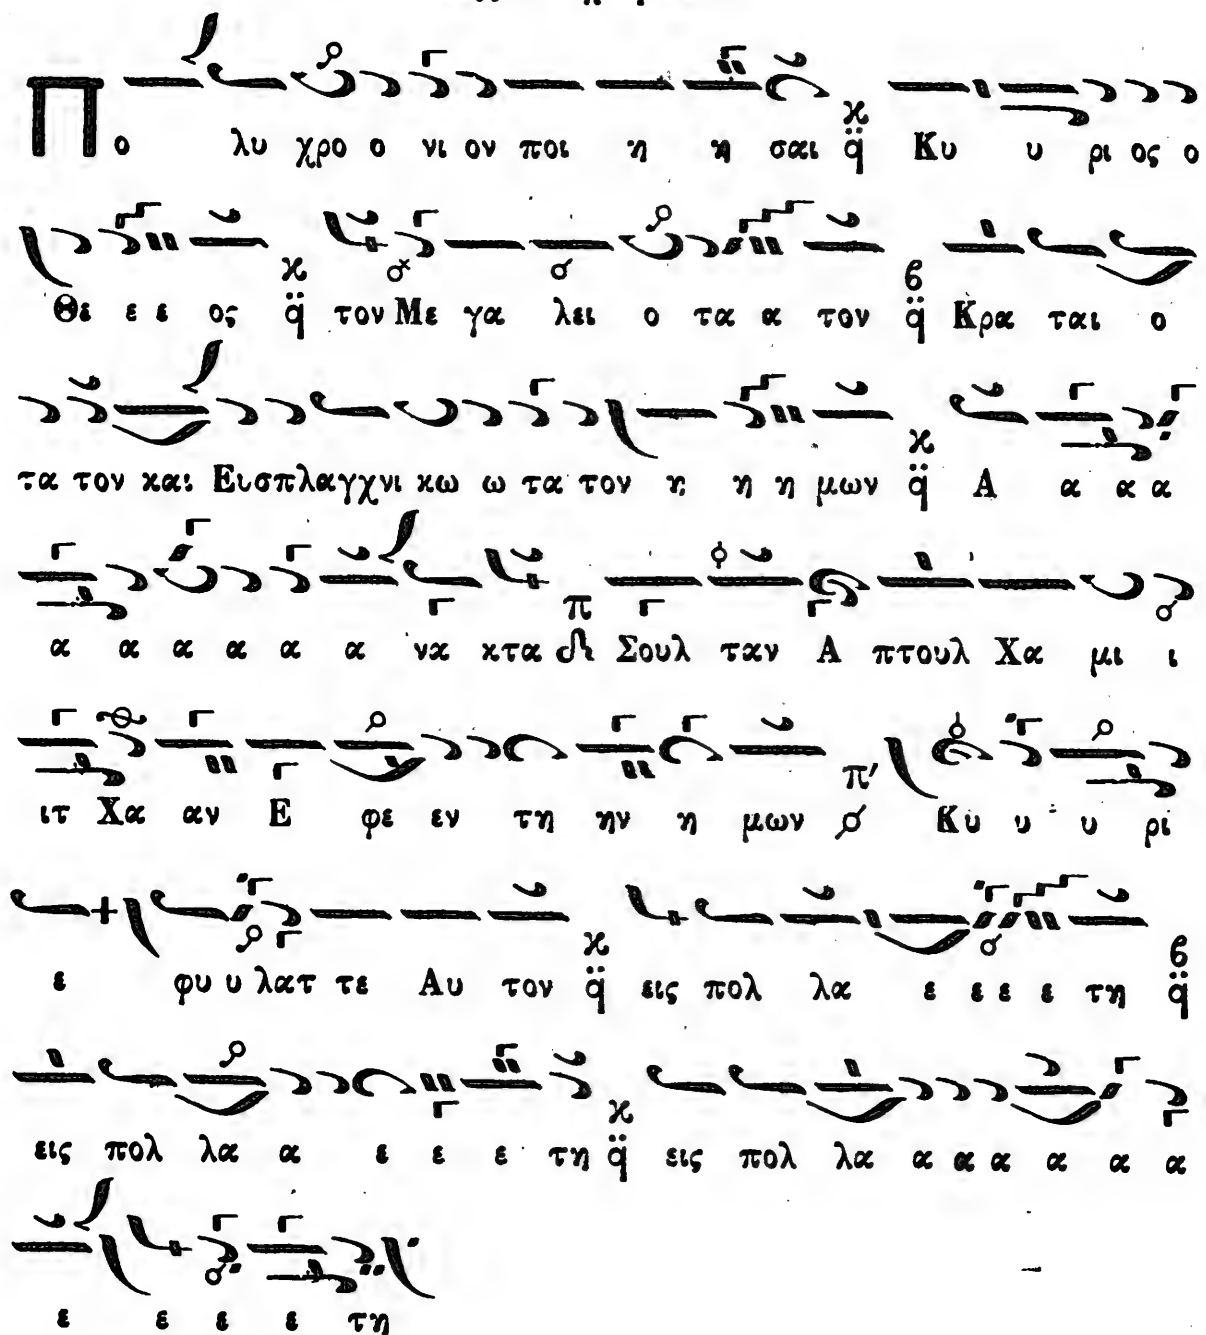 Πο λυ χρο ο νι ον ποι η η σαι Κυ υ ρι ος ο
Θε ε ε ος τον Με γα λει ο τα α τον Κρα ται ο
τα τον και Ευσπλαγχνι κω ω τα τον η η η μων Α α α α
α α α α α α να κτα Σουλ ταν Α πτουλ Χα μι ι
ιτ Χα αν Ε φε εν τη ην η μων Κυ υ υ ρι
ε φυ υ λατ τε Αυ τον εις πολ λα ε ε ε ε τη
εις πολ λα α ε ε ε τη εις πολ λα α α α α α α
ε ε ε ε τη